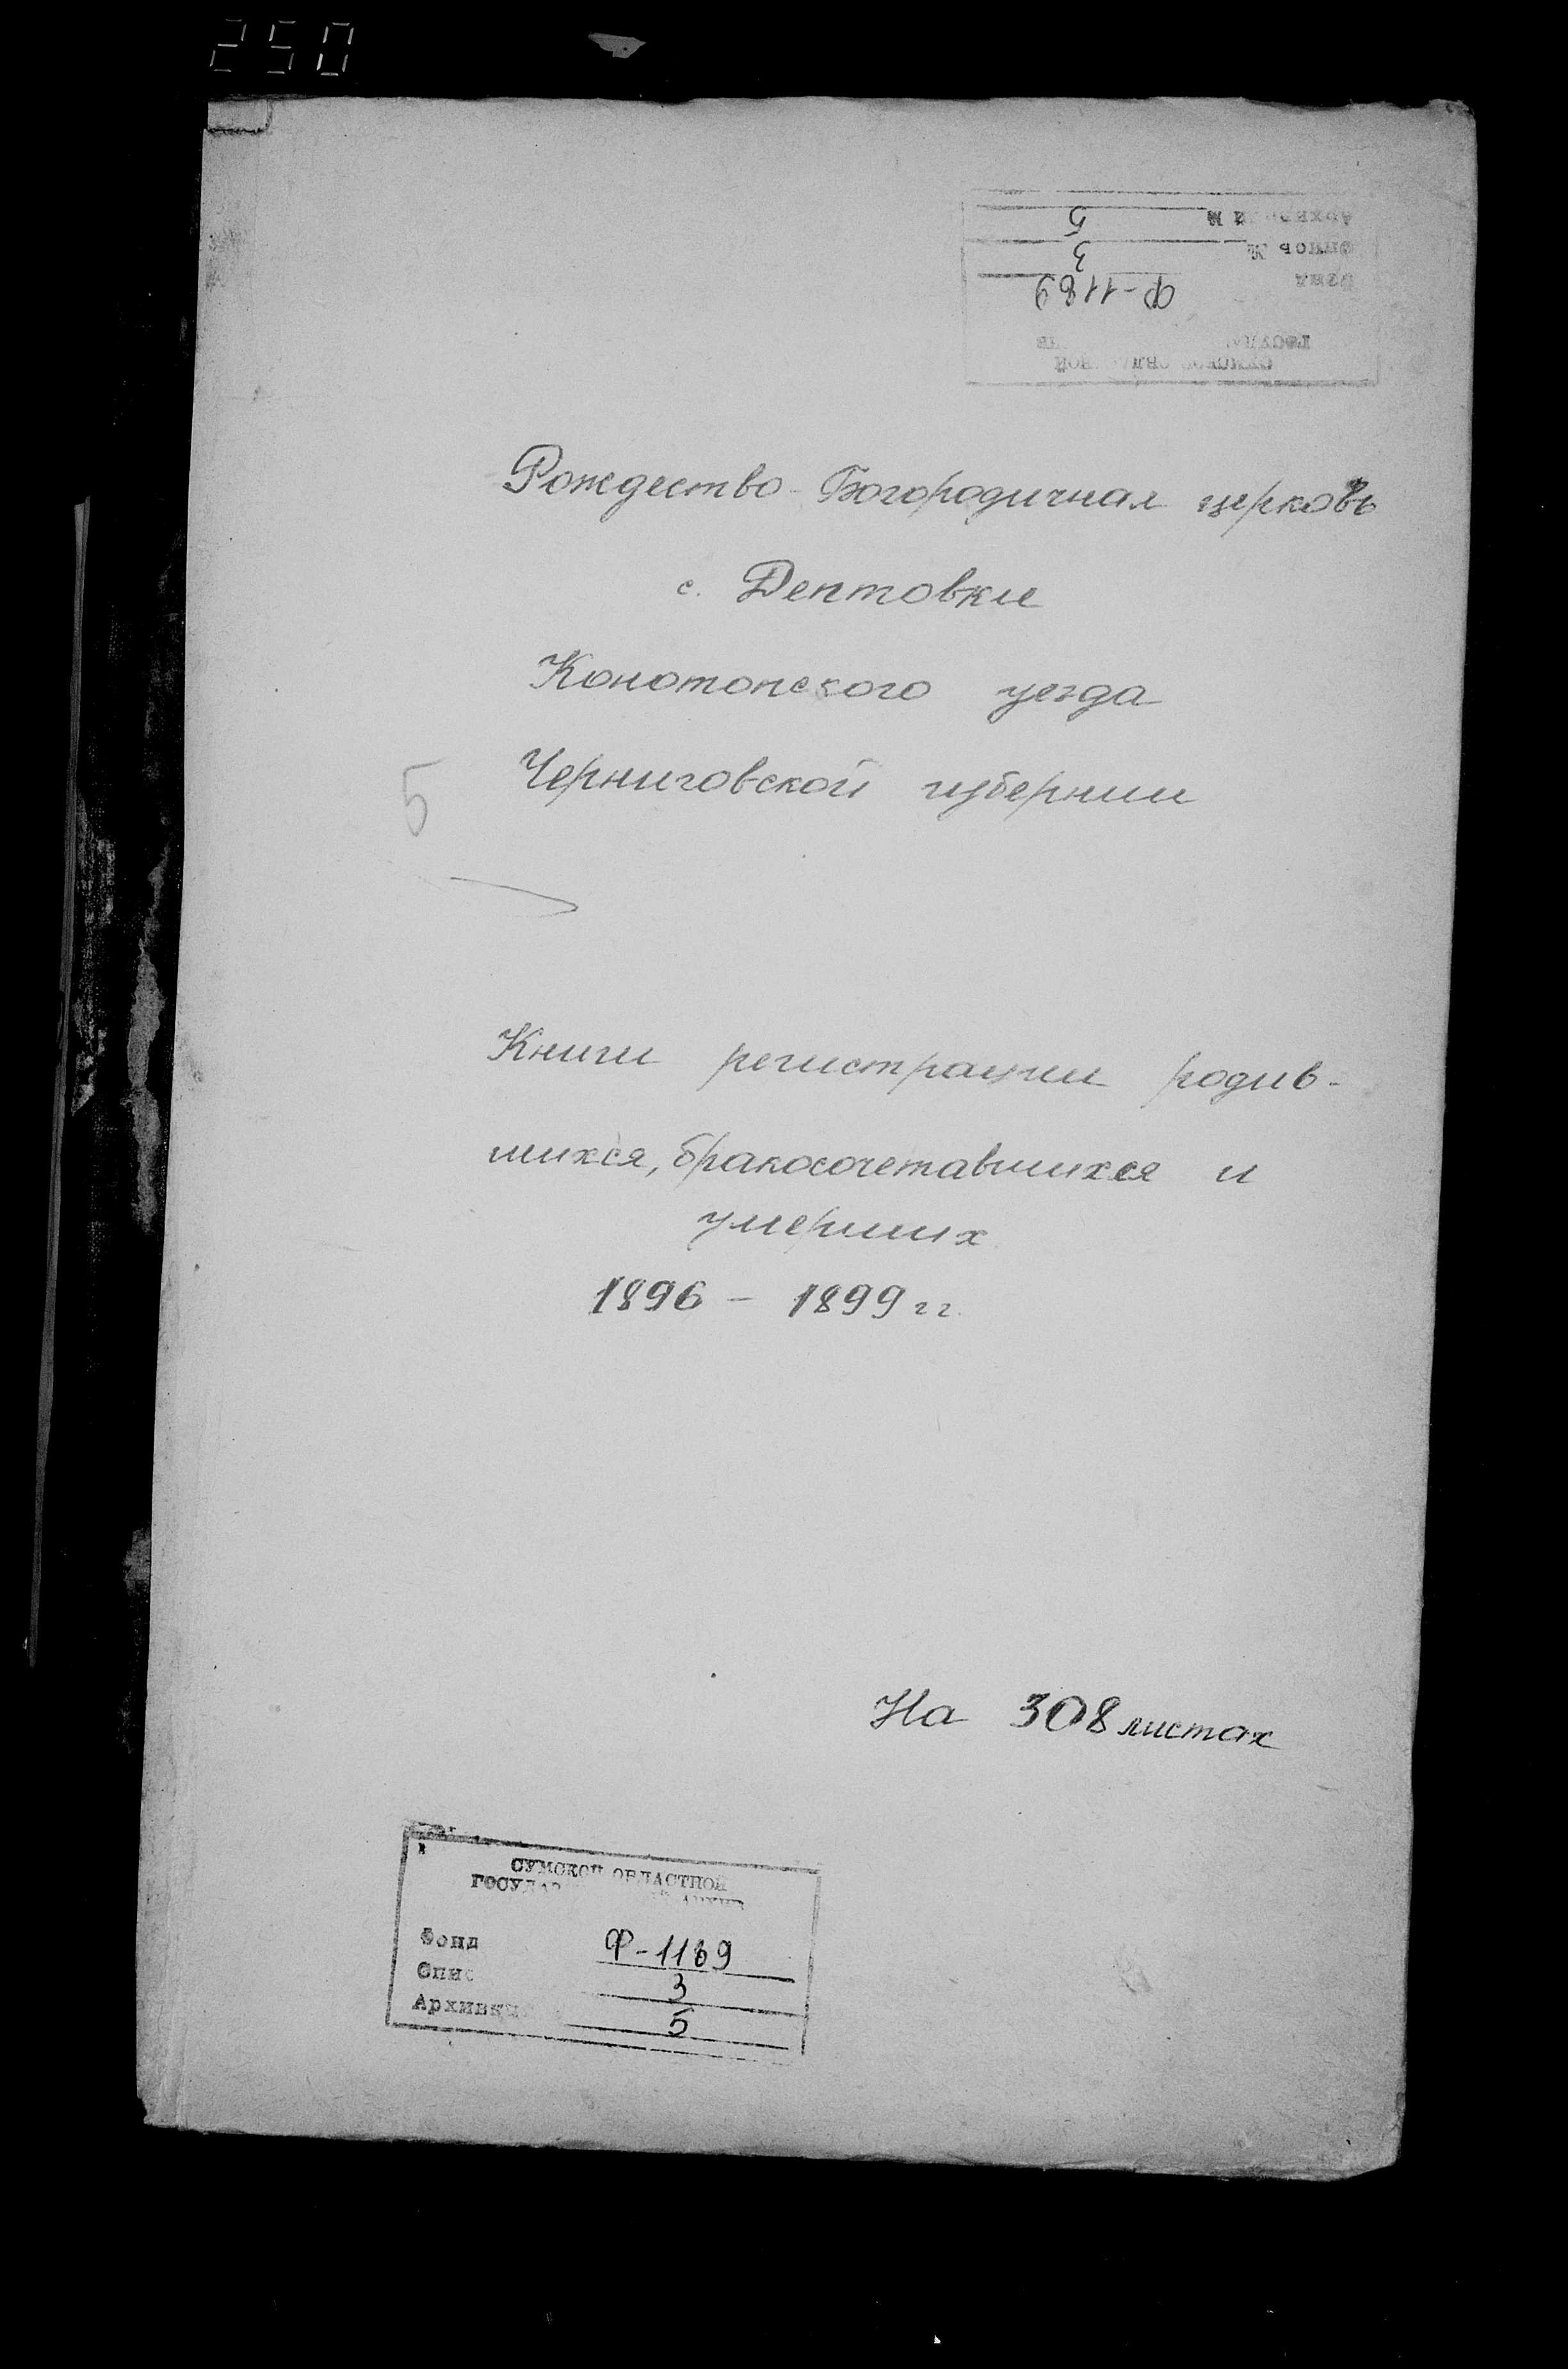 250
5
3
Ф-1189
Рождество-Богородичная церковь
с. Дептовки
Конотопского уезда
Черниговской губернии
5
Книги регистрации родив-
шихся, бракосочетавшихся и
умерших
1896 - 1899 гг.
На 308 листах
СУМСКОЙ ОБЛАСТНОЙ
Фонд Ф-1189
3
5